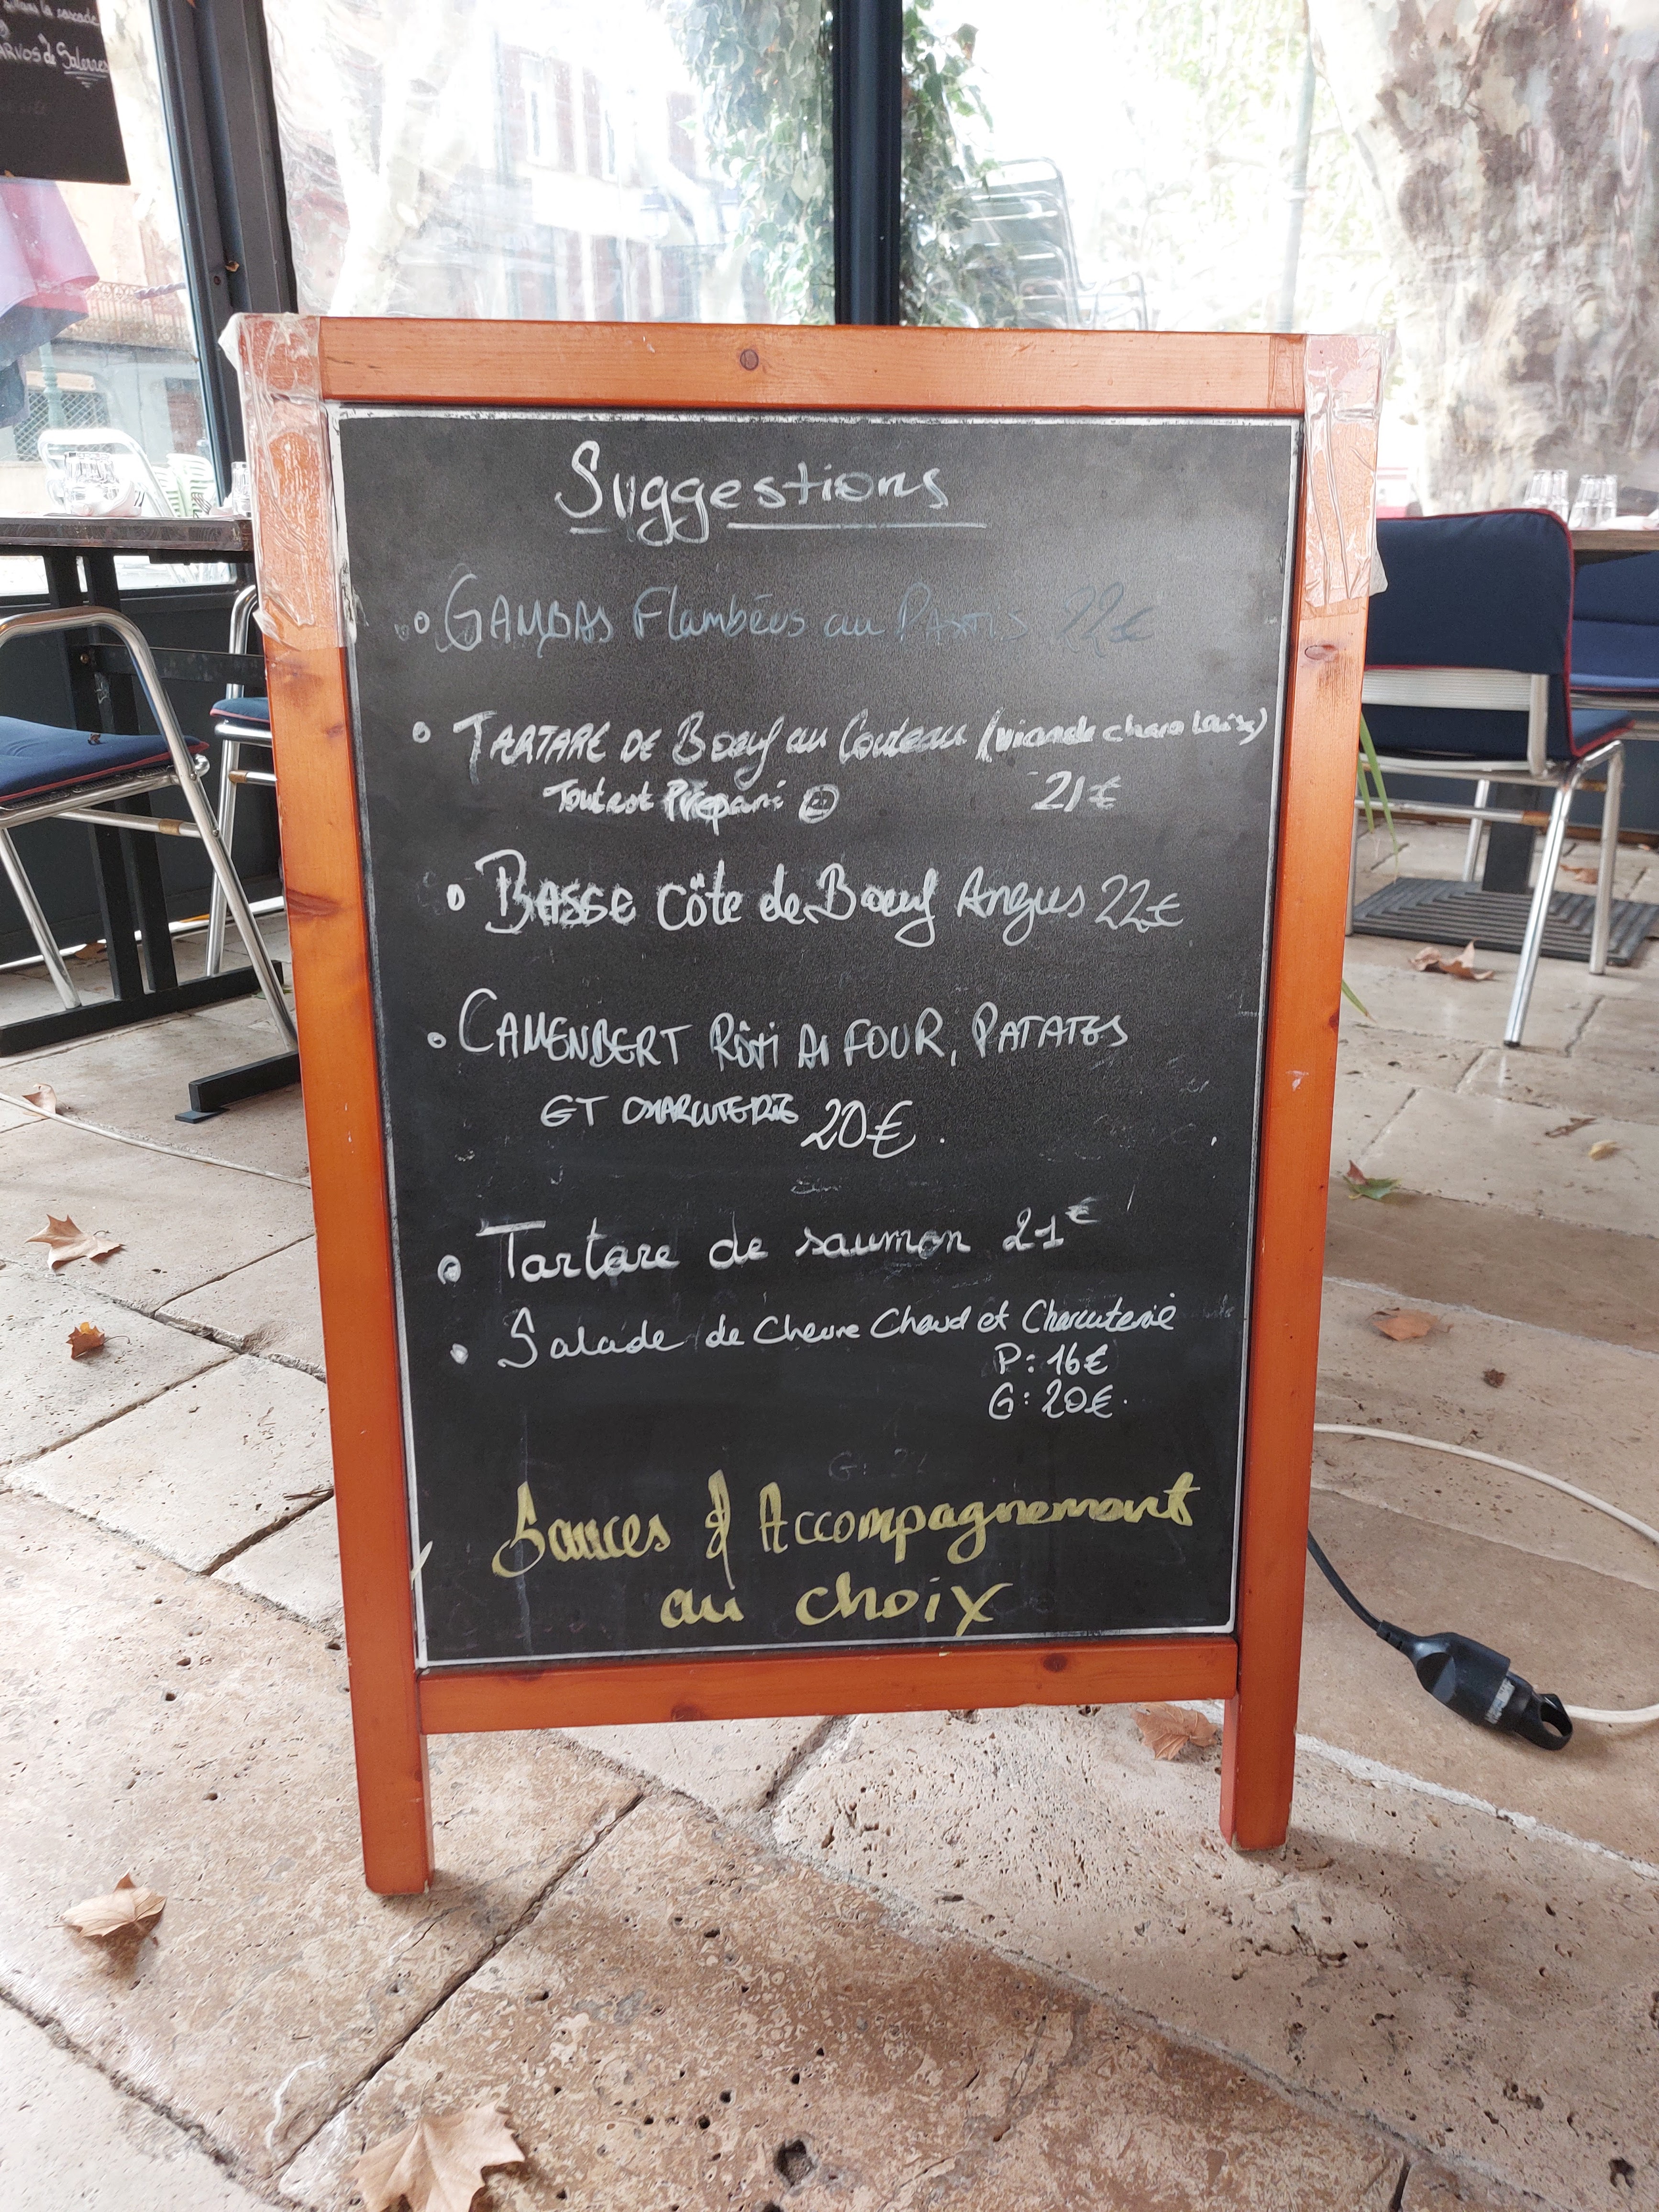 sillans la cascade
ARVOS de Salernes
Suggestions
GAMBAS Flambées au PASTIS 22€
TARTARE DE Bœuf au Couteau (viande charolaise)
Tout est Préparé 21€
BASSE Côte de Bœuf Angus 22€
CAMENBERT Rôti Au FOUR, PATATES
ET CHARCUTERIE 20€.
Tartare de saumon 21€
Salade de Chevre Chaud et Charcuterie
P: 16€
G: 20€.
Sauces & Accompagnement
au choix